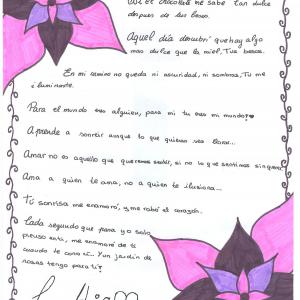 Ni el chocolate me sabe tan dulce
después de tus besos.
Aquel día descubrí que hay algo
mas dulce que la miel, Tus besos.
En mi camino no queda ni oscuridad, ni sombras, Tu me
iluminaste.
Para el mundo eres alguien, para mi tu eres mi mundo!
Aprende a sonreir aunque lo que quieras sea llorar...
Amar no es aquello que queremos sentir, si no lo que sentimos sin querer
Ama a quien te ama, no a quien te ilusiona...
Tú sonrisa me enamoró, y me robó el corazón.
Cada segundo que pasa yo solo
pienso en ti, me enamoré de ti
cuando te conocí.. Y un jardín de
rosas tengo para ti!